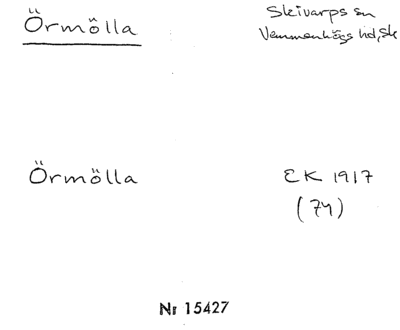 Örmölla
Skivarps sn
Vemmenhögs hd, Sk
Örmölla
EK 1917
(74)
Nr 15427